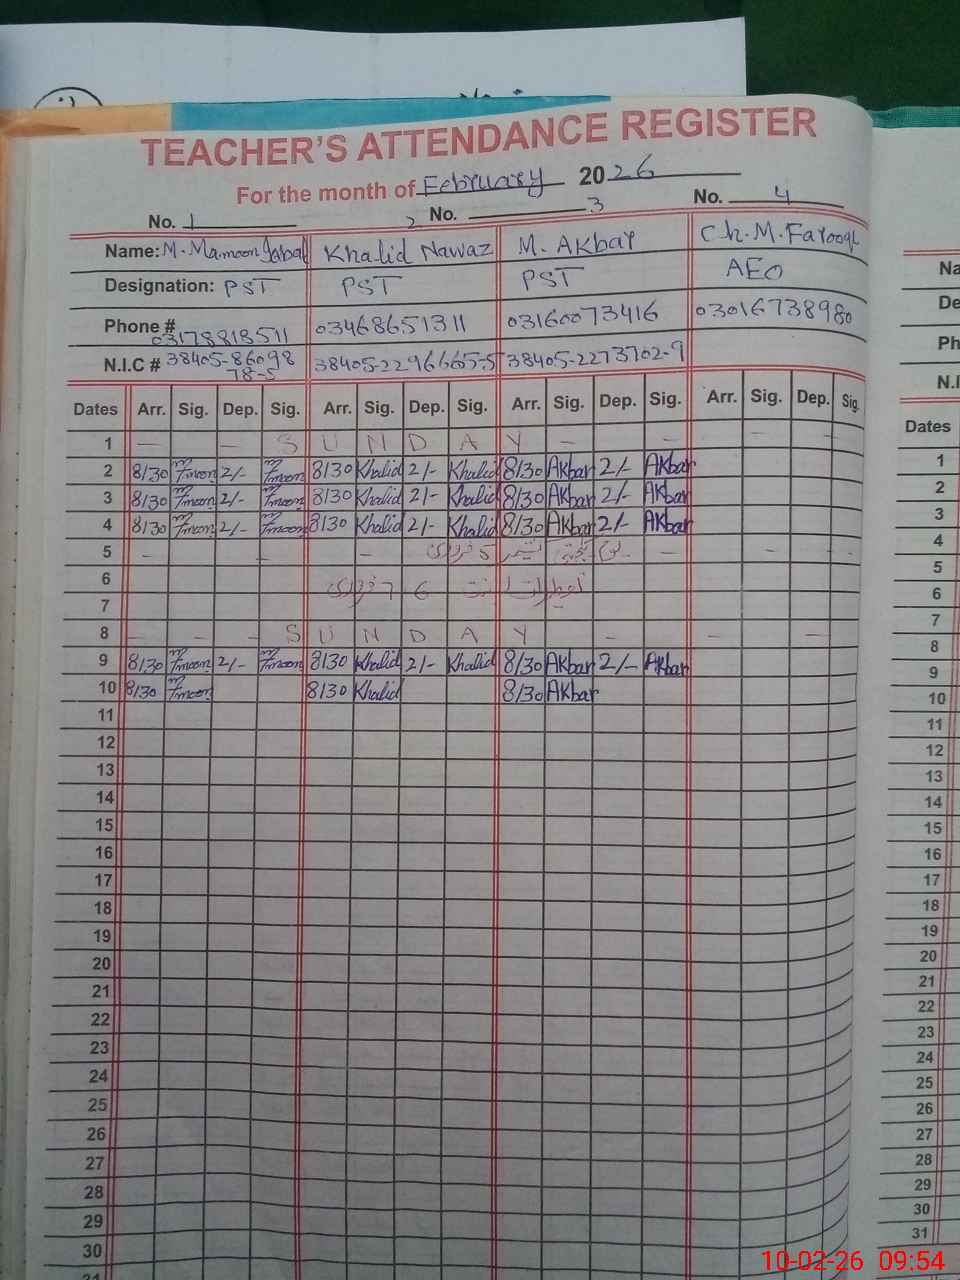 TEACHER'S ATTENDANCE REGISTER
For the month of February 2026
No. 1 2 No. 3 No. 4
Name: M. Mamoon Iqbal Khalid Nawaz M. AKbar Ch. M. Farooq
Designation: PST PST PST AEO
Phone # 03178818511 03468651311 03160073416 03016738980
N.I.C # 38405-86098 78-5 38405-2296665-5 38405-2273702-9
Dates Arr. Sig. Dep. Sig. Arr. Sig. Dep. Sig. Arr. Sig. Dep. Sig. Arr. Sig. Dep. Sig.
1 — — S U N D A Y — — — —
2 8/30 2/- 8/30 Khalid 2/- Khalid 8/30 AKbar 2/- AKbar
3 8/30 2/- 8/30 Khalid 2/- Khalid 8/30 AKbar 2/- AKbar
4 8/30 2/- 8/30 Khalid 2/- Khalid 8/30 AKbar 2/- AKbar
5 - - - 5 فروری - - -
6 6 7 فروری
7
8 - - - S U N D A Y - - - -
9 8/30 2/- 8/30 Khalid 2/- Khalid 8/30 AKbar 2/- AKbar
10 8/30 8/30 Khalid 8/30 AKbar
11
12
13
14
15
16
17
18
19
20
21
22
23
24
25
26
27
28
29
30
31
Na
De
Ph
N.I
Dates
1
2
3
4
5
6
7
8
9
10
11
12
13
14
15
16
17
18
19
20
21
22
23
24
25
26
27
28
29
30
31
10-02-26 09:54